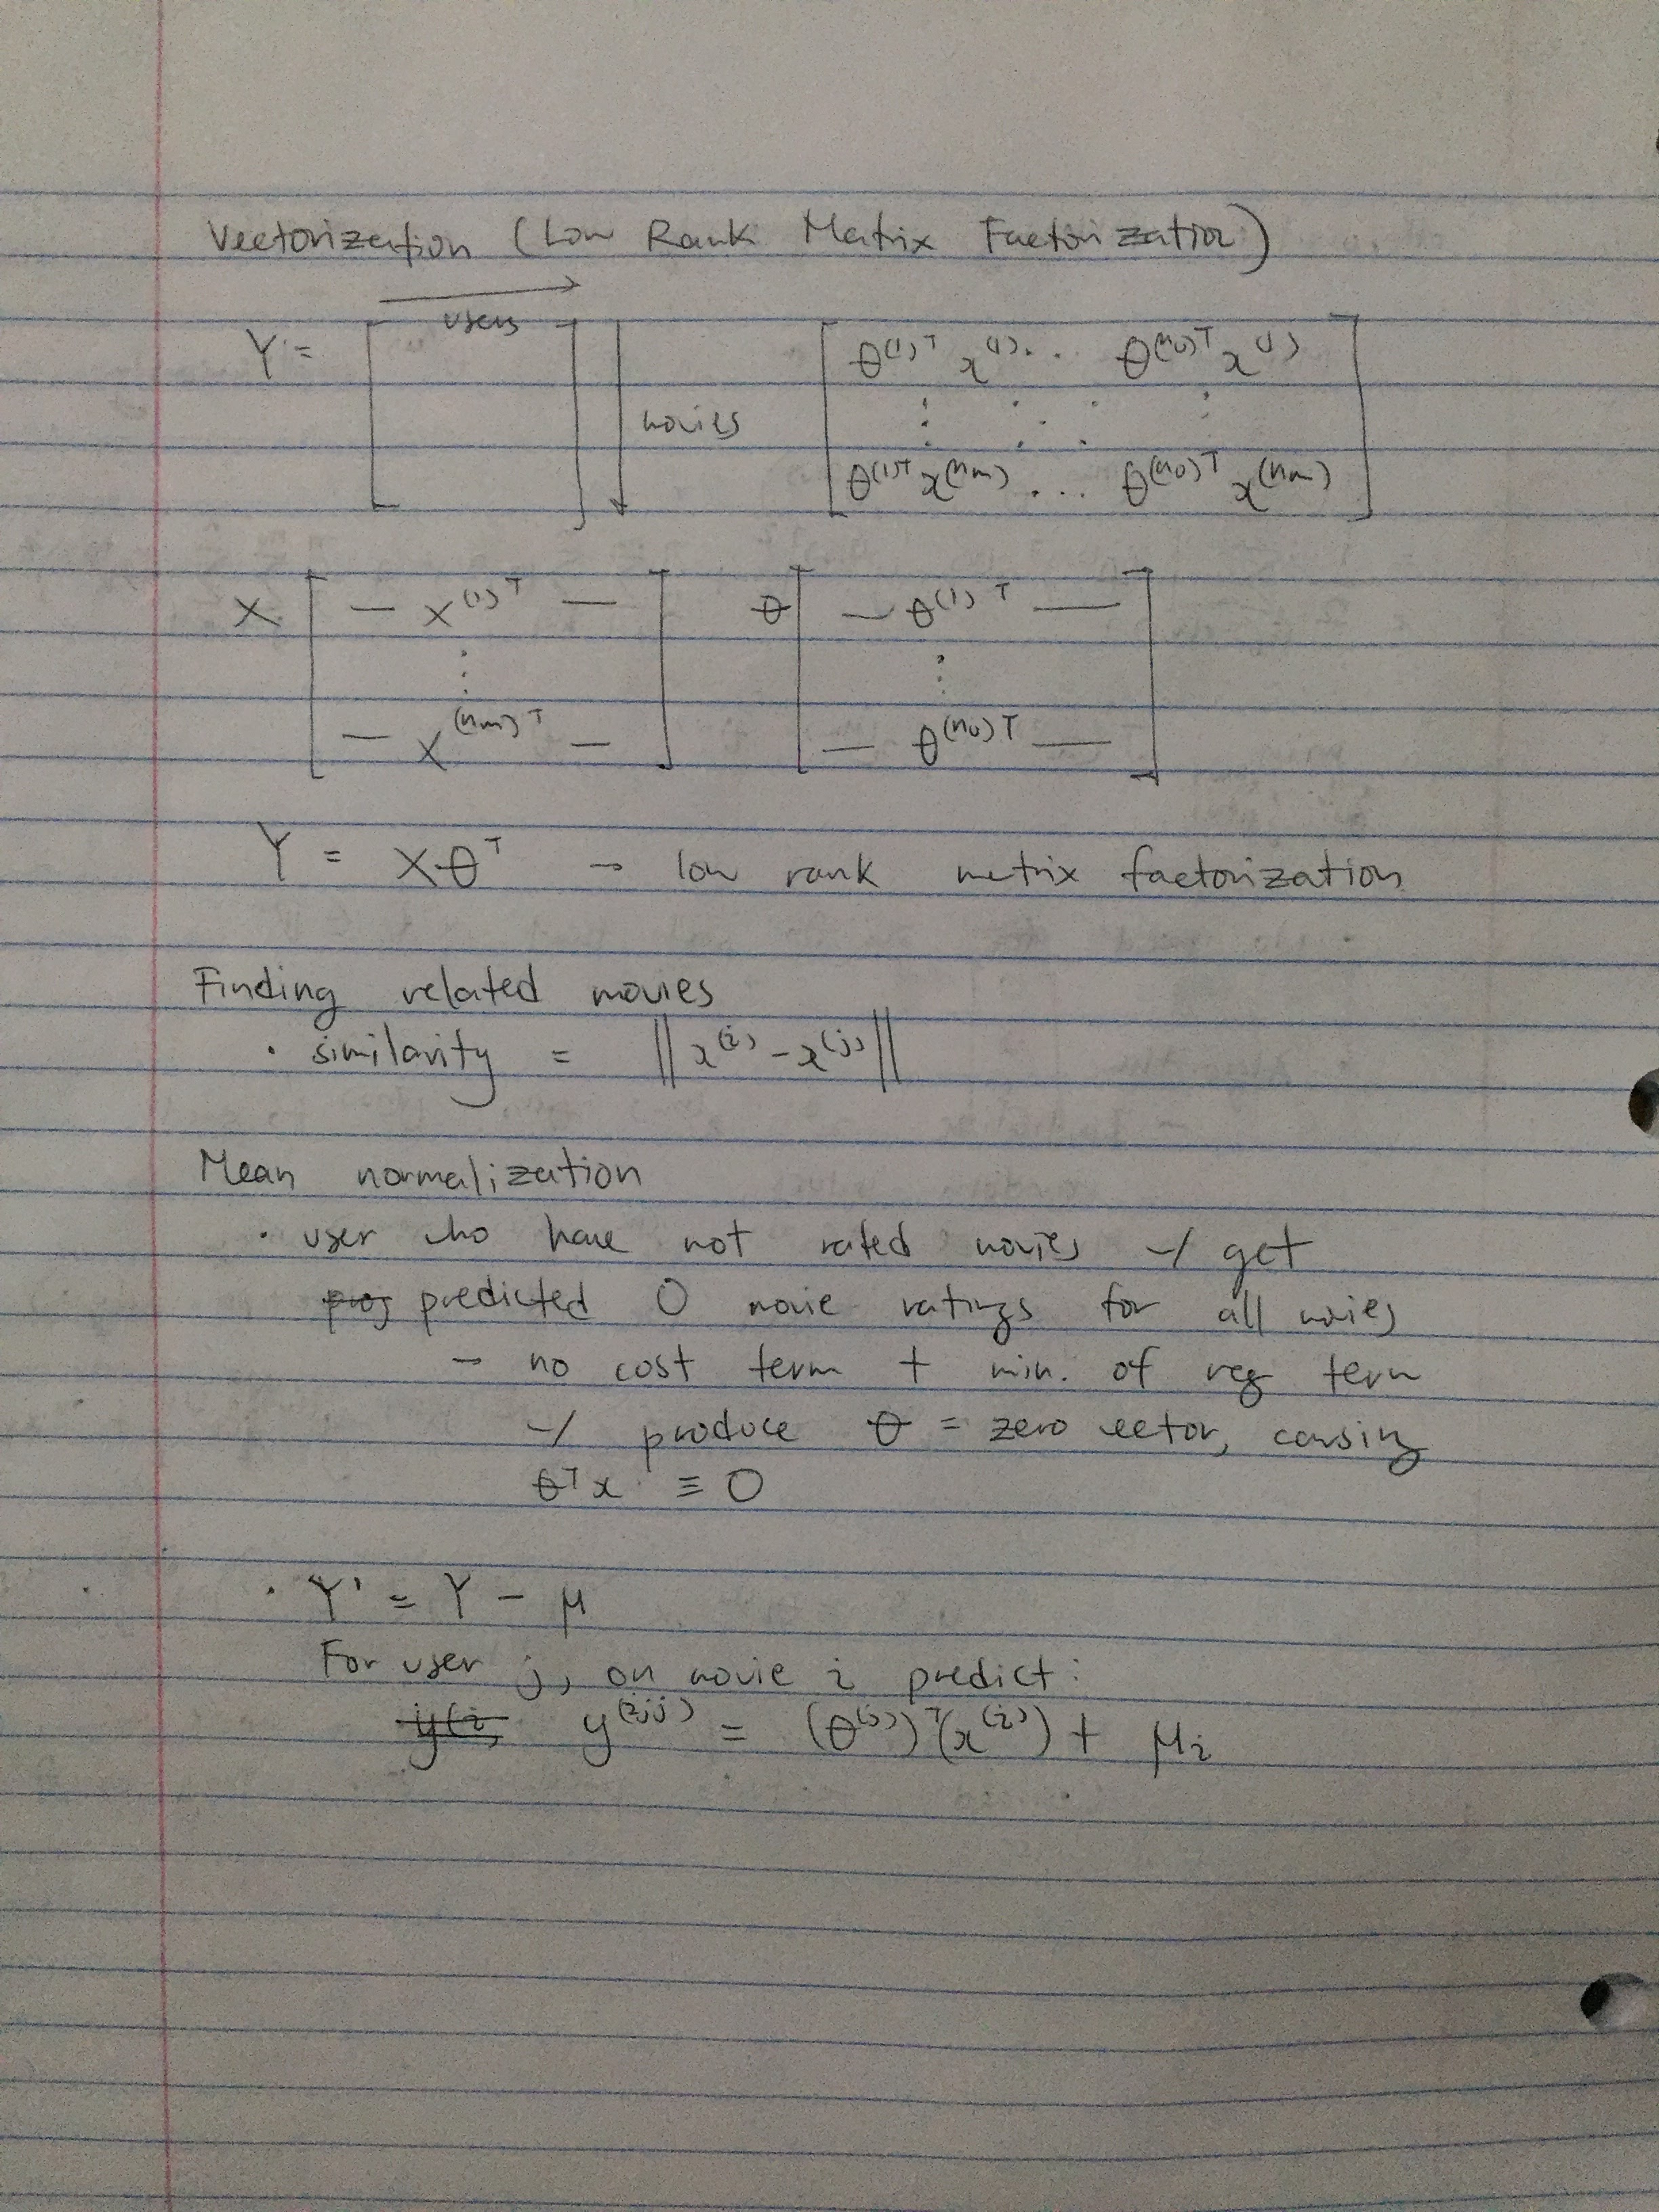 Vectorization (Low Rank Matrix Factorization)
users
Y = [ ] movies
[ θ^(1)T x^(1) ... θ^(nu)T x^(1)
⋮ ⋱ ⋮
θ^(1)T x^(nm) ... θ^(nu)T x^(nm) ]
X [ — x^(1)T — θ [ — θ^(1)T —
⋮ ⋮
— x^(nm)T — ] — θ^(nu)T — ]
Y = Xθ^T → low rank matrix factorization
Finding related movies
· similarity = ||x^(i) - x^(j)||
Mean normalization
· user who have not rated movies → get
predicted 0 movie ratings for all movies
→ no cost term + min. of reg term
→ produce θ = zero vector, causing
θ^T x ≡ 0
· Y' = Y - μ
For user j, on movie i predict:
y^(i,j) = (θ^(j))^T (x^(i)) + μi